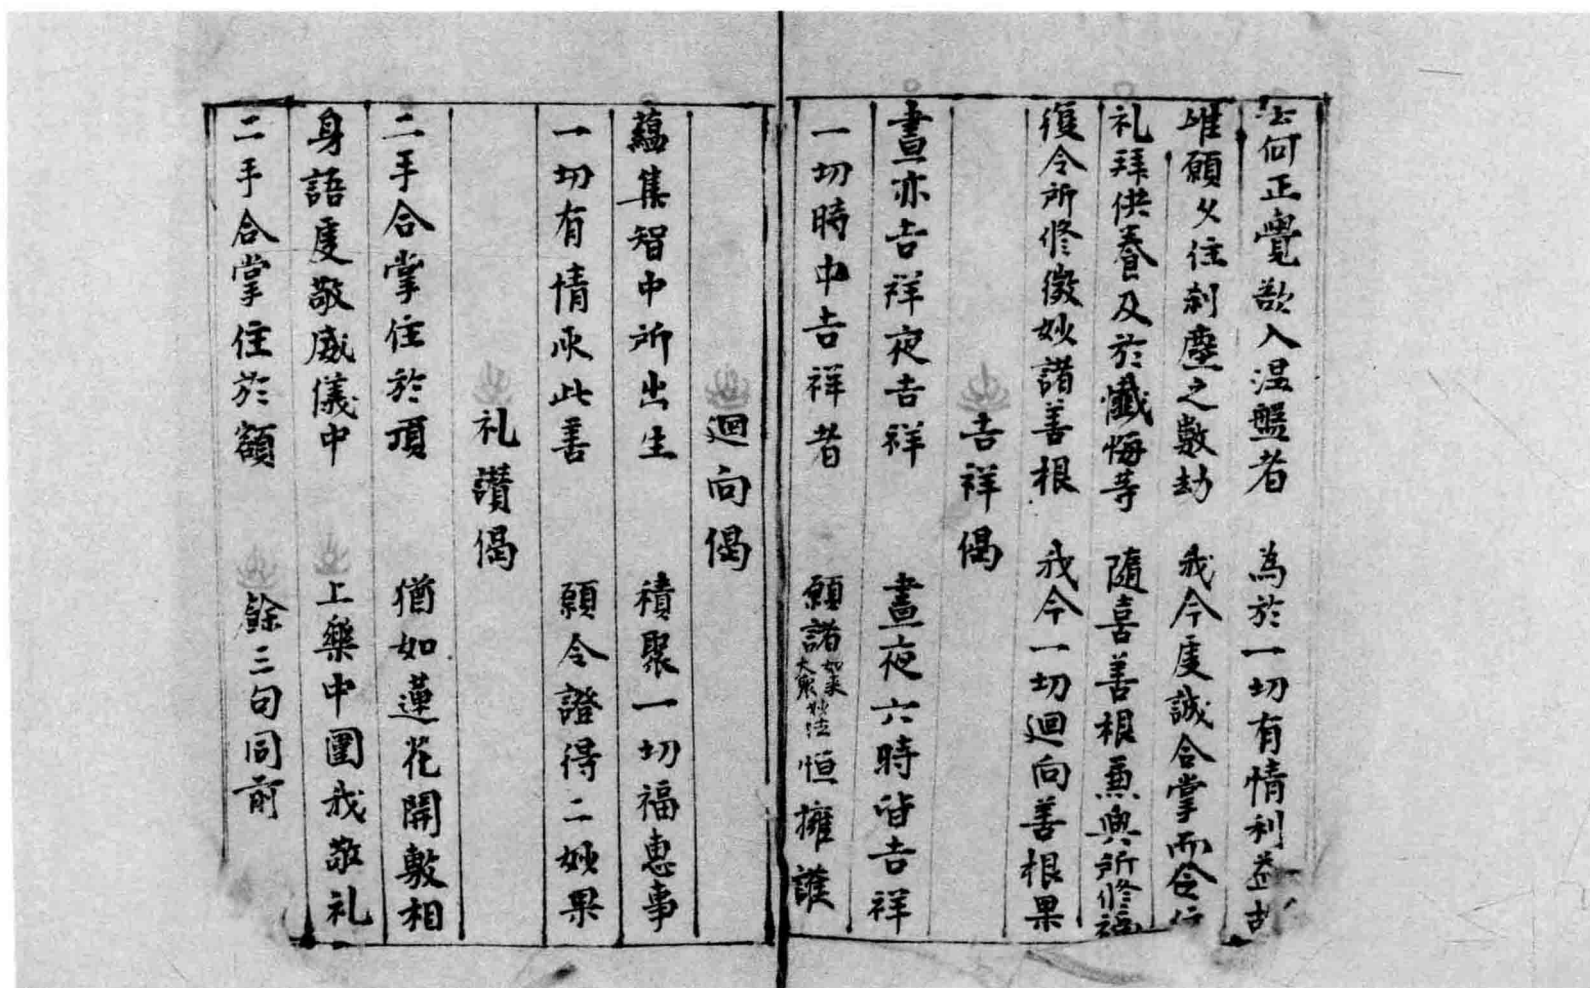 何正覺欲入涅盤者　為於一切有情利益故
唯願久住剎塵之數劫　我今虔誠合掌而令
礼拜供養及於懺悔等　隨喜善根兼與所修福
復令所修微妙諸善根　我今一切迴向善根果
吉祥偈
晝亦吉祥夜吉祥　晝夜六時皆吉祥
一切時中吉祥者　願諸如来大衆妙法恒擁護
迴向偈
蘊集智中所出生　積聚一切福惠事
一切有情承此善　願令證得二妙果
礼讃偈
二手合掌住於頂　猶如蓮花開敷相
身語虔敬威儀中　上樂中圍我敬礼
二手合掌住於額　餘三句同前